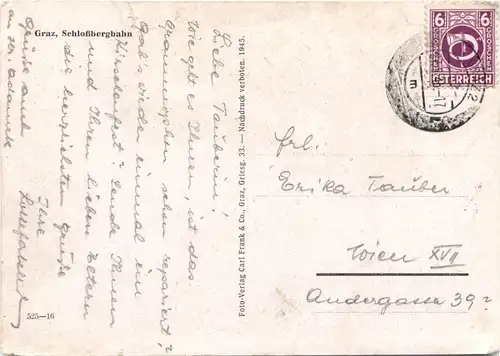 Graz, Schloßbergbahn
Liebe Tauberin!
Wie geht es Ihnen, ist das
Grammophon schon repariert?
Gab's wieder einmal ein
Kirschenfest? Sende Ihnen
und Ihren lieben Eltern
die herzlichsten Grüße
Ihre
Grüße auch
an
525—16
Foto-Verlag Carl Frank & Co., Graz, Griesg. 33. — Nachdruck verboten. 1945.
6 6
ÖSTERREICH
Frl.
Erika Tauber
Wien XVII
Andergasse 39?